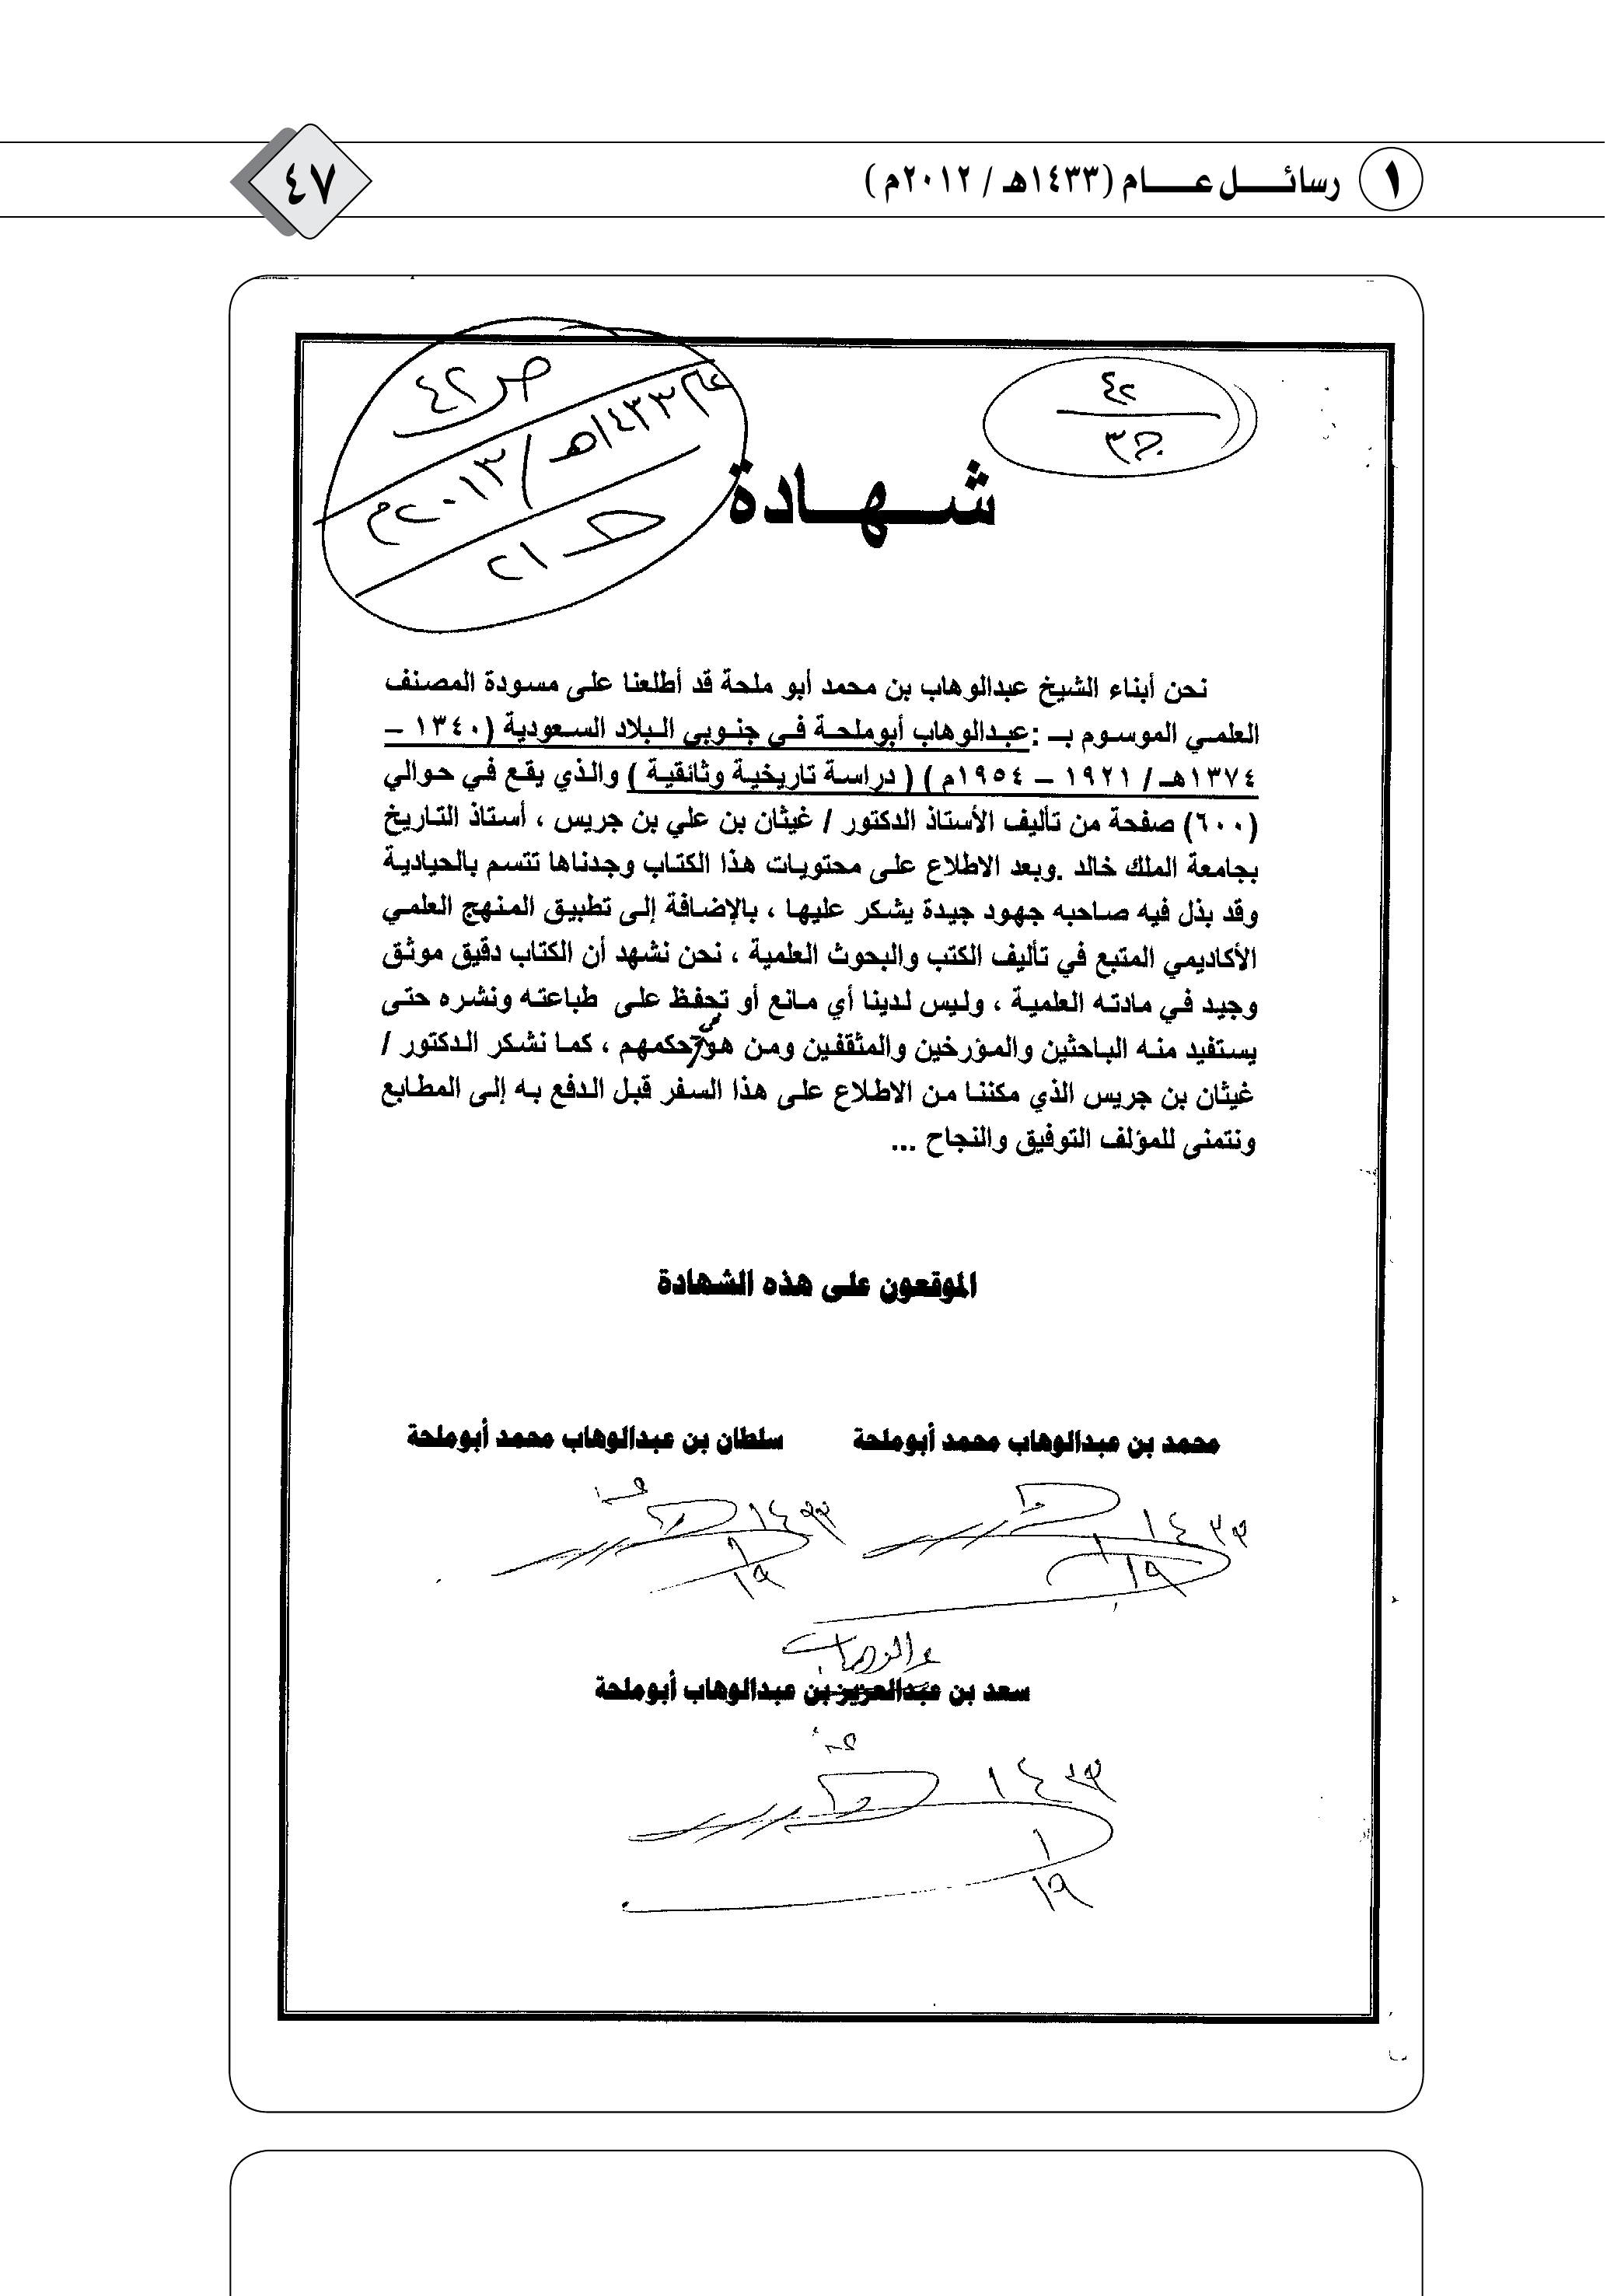 ١ رسائل عام (١٤٣٣هـ / ٢٠١٢م) ٤٧
٤٢
ج٣
ص ٤٢
عام ١٤٣٣هـ / ٢٠١٣م
حـ ٢١
شهادة
نحن أبناء الشيخ عبدالوهاب بن محمد أبو ملحة قد أطلعنا على مسودة المصنف
العلمي الموسوم بـ :عبدالوهاب أبوملحة في جنوبي البلاد السعودية (١٣٤٠ –
١٣٧٤هـ / ١٩٢١ – ١٩٥٤م ) ( دراسة تاريخية وثائقية ) والذي يقع في حوالي
(٦٠٠) صفحة من تأليف الأستاذ الدكتور / غيثان بن علي بن جريس ، أستاذ التاريخ
بجامعة الملك خالد .وبعد الاطلاع على محتويات هذا الكتاب وجدناها تتسم بالحيادية
وقد بذل فيه صاحبه جهود جيدة يشكر عليها ، بالإضافة إلى تطبيق المنهج العلمي
الأكاديمي المتبع في تأليف الكتب والبحوث العلمية ، نحن نشهد أن الكتاب دقيق موثق
وجيد في مادته العلمية ، وليس لدينا أي مانع أو تحفظ على طباعته ونشره حتى
يستفيد منه الباحثين والمؤرخين والمثقفين ومن هو في حكمهم ، كما نشكر الدكتور /
غيثان بن جريس الذي مكننا من الاطلاع على هذا السفر قبل الدفع به إلى المطابع
ونتمنى للمؤلف التوفيق والنجاح ...
الموقعون على هذه الشهادة
محمد بن عبدالوهاب محمد أبوملحة سلطان بن عبدالوهاب محمد أبوملحة
١٤٣٣ ١٤٣٣
١ ١
١٩ ١٩
عبدالوهاب
سعد بن عبدالعزيز بن عبدالوهاب أبوملحة
١٤٣٣
١
١٩